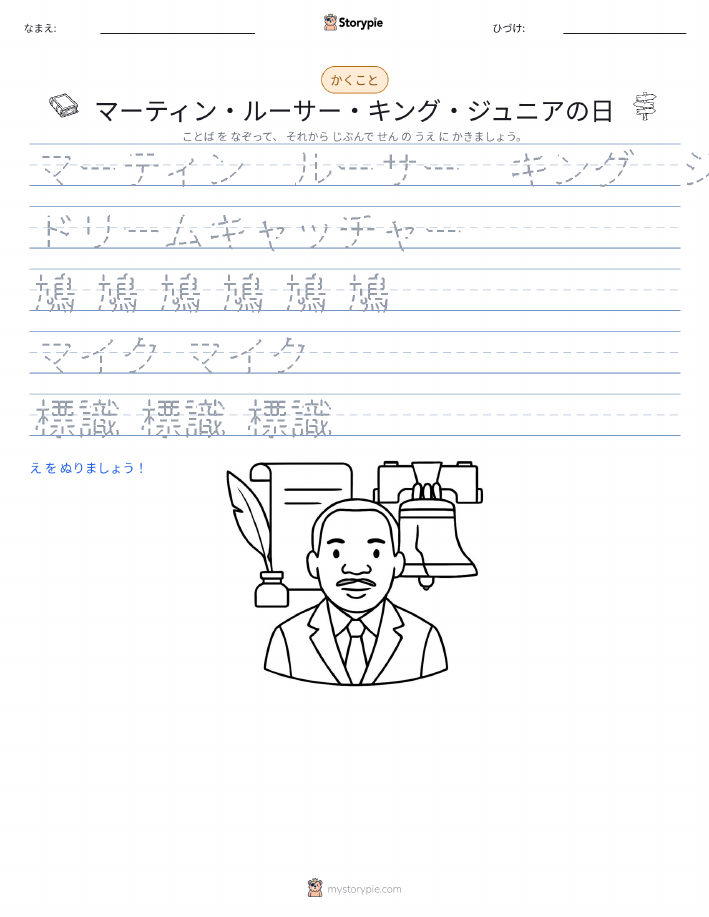 なまえ:
Storypie
ひづけ:
かくこと
マーティン・ルーサー・キング・ジュニアの日
ことば を なぞって、 それから じぶんで せん の うえ に かきましょう。
マーティン ルーサー キング ジ
ドリームキャッチャー
鳩 鳩 鳩 鳩 鳩 鳩
マイク マイク
標識 標識 標識
え を ぬりましょう！
mystorypie.com